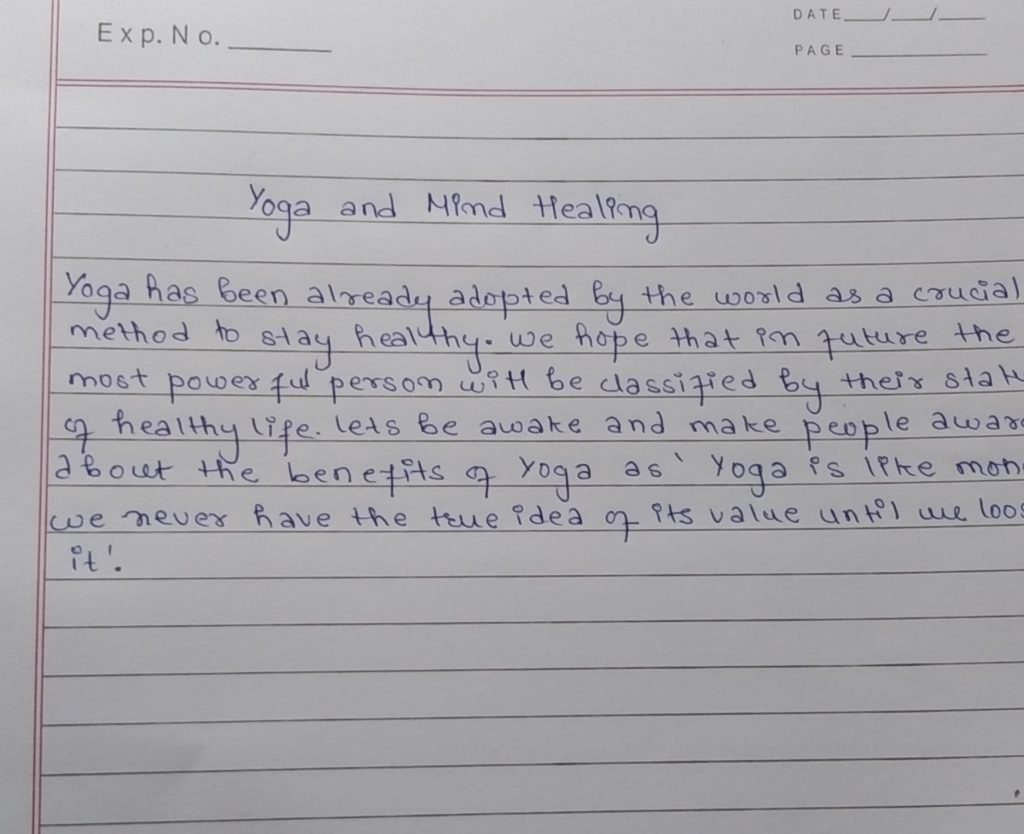 Exp. No.
DATE / /
PAGE
Yoga and Mind Healing
Yoga has been already adopted by the world as a crucial
method to stay healthy. we hope that in future the
most powerful person will be classified by their
of healthy life. lets be awake and make people
about the benefits of Yoga as ' Yoga is like
we never have the true idea of its value until we
it'.